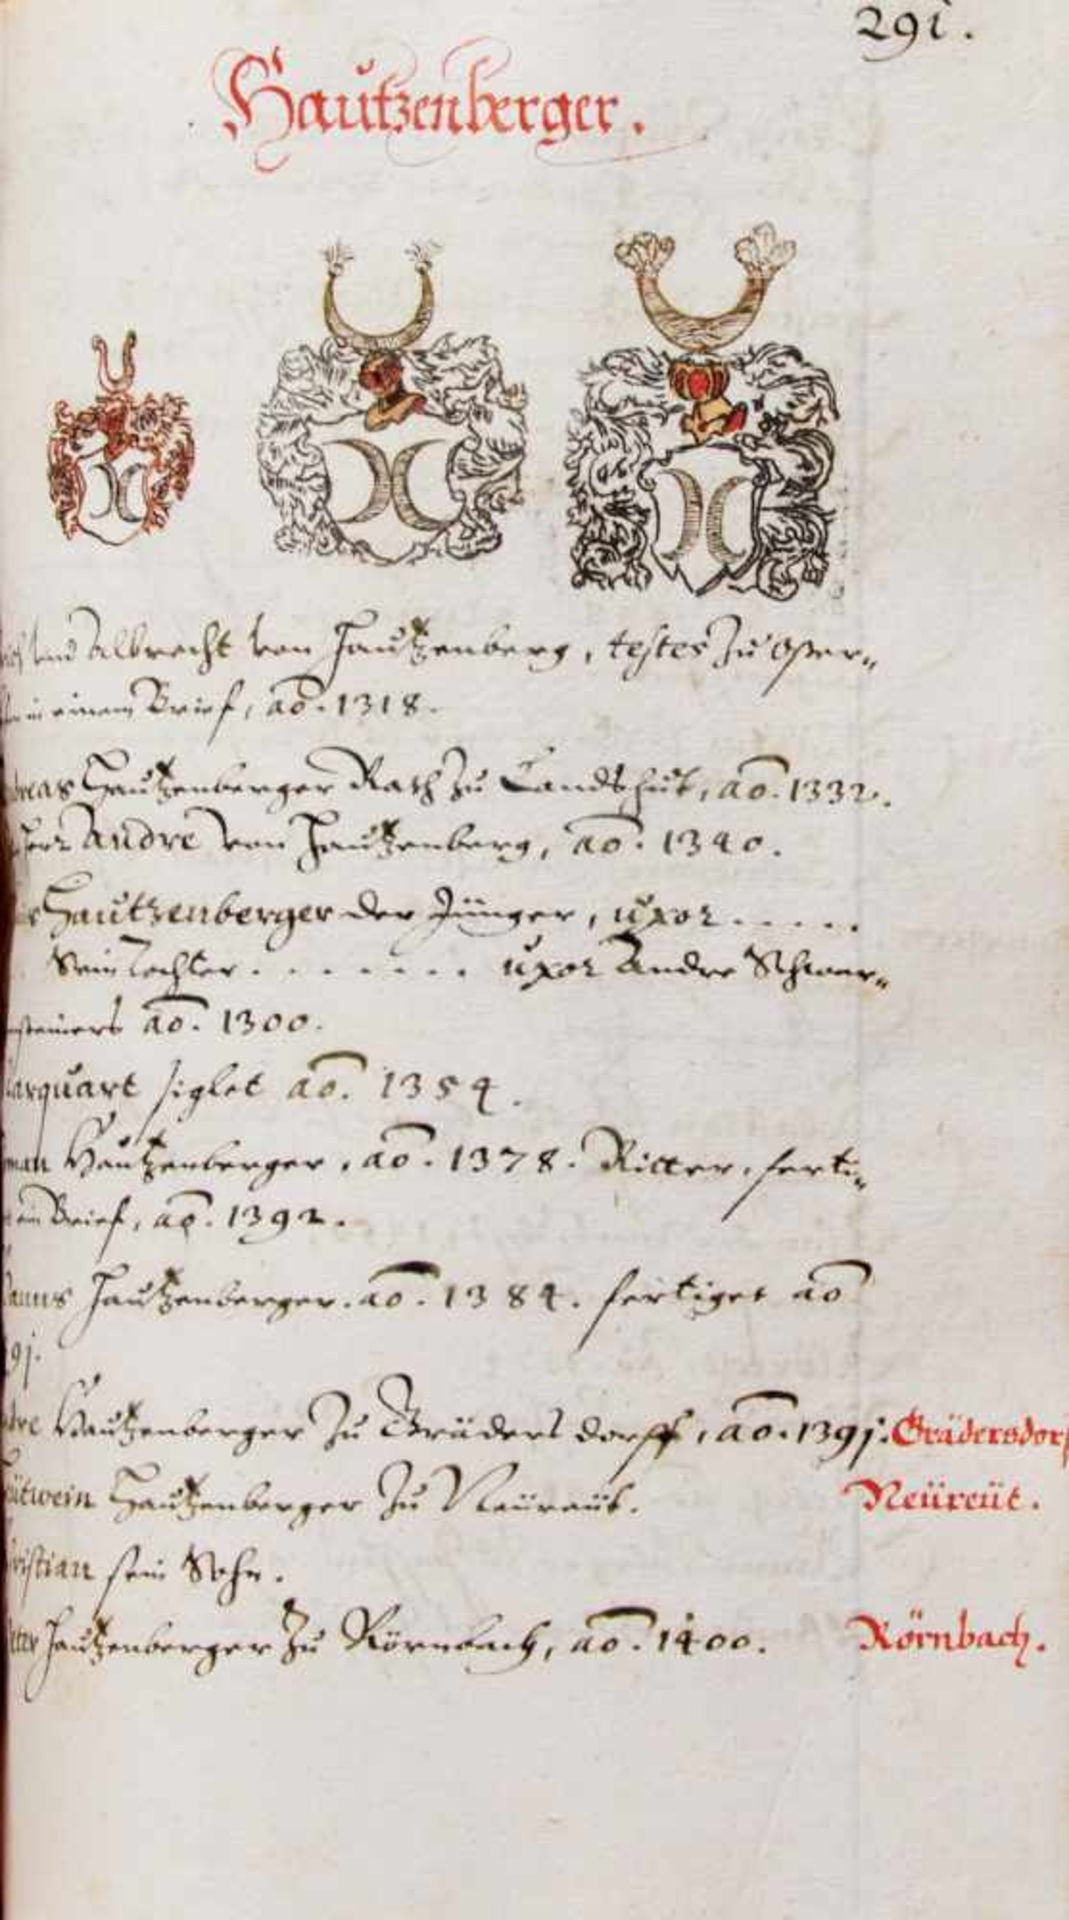 291.
Hautzenberger.
und Albrecht von Hautzenberg, testes zu Oster„
in einem Brief, ao. 1318.
dreas Hautzenberger Rath zu Landshut, ao. 1332.
Herr Andre von Hautzenberg, ao. 1340.
Hautzenberger der Jünger, uxor . . . . .
Sein Tochter . . . . . . . uxor Andre Schwar„
steiners ao. 1300.
arquart siglet ao. 1354.
man Hautzenberger, ao. 1378. Ritter, ferti„
ein Brief, ao. 1392.
anns Hautzenberger. ao. 1384. fertiget ao
9j.
dre Hautzenberger zu Grädersdorff, ao. 139j. Grädersdorf
ütwein Hautzenberger zu Neüreüt. Neüreüt.
ristian sein Sohn.
eter Hautzenberger zu Rörnbach, ao. 1400. Rörnbach.